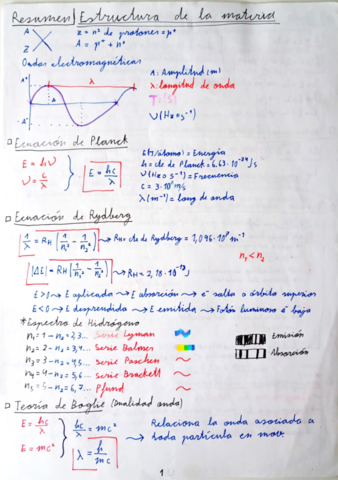 Resumen/Estructura de la materia
A
Z
Z = nº de protones = p⁺
A = p⁺ + n⁰
Ondas electromagnéticas
A⁺
A⁻
λ
A: Amplitud (m)
λ: longitud de onda
T: (s)
ν (Hz o s⁻¹)
Ecuación de Planck
E = hν
ν = c/λ
E = hc/λ
E (J/átomo) = Energía
h = cte de Planck = 6,63·10⁻³⁴ Js
ν (Hz o s⁻¹) = Frecuencia
c = 3·10⁸ m/s
λ (m⁻¹) = long de onda
Ecuación de Rydberg
1/λ = R_H (1/n₁² - 1/n₂²) → R_H = cte de Rydberg = 1,096·10⁷ m⁻¹
n₁ < n₂
|ΔE| = R_H (1/n₁² - 1/n₂²) → R_H = 2,18·10⁻¹⁸ J
E>0 → E aplicada → E absorción → e⁻ salta a órbita superior
E<0 → E desprendida → E emitida → Fotón luminoso e⁻ baja
*Espectro de Hidrógeno
n₁ = 1 - n₂ = 2,3... Serie Lyman
n₁ = 2 - n₂ = 3,4... Serie Balmer
n₁ = 3 - n₂ = 4,5... Serie Paschen
n₁ = 4 - n₂ = 5,6... Serie Brackett
n₁ = 5 - n₂ = 6,7... Pfund
Emisión
Absorción
Teoría de Boglie (Dualidad onda)
E = hc/λ
E = mc²
hc/λ = mc²
λ = h/mc
Relaciona la onda asociada a
toda partícula en mov.
1